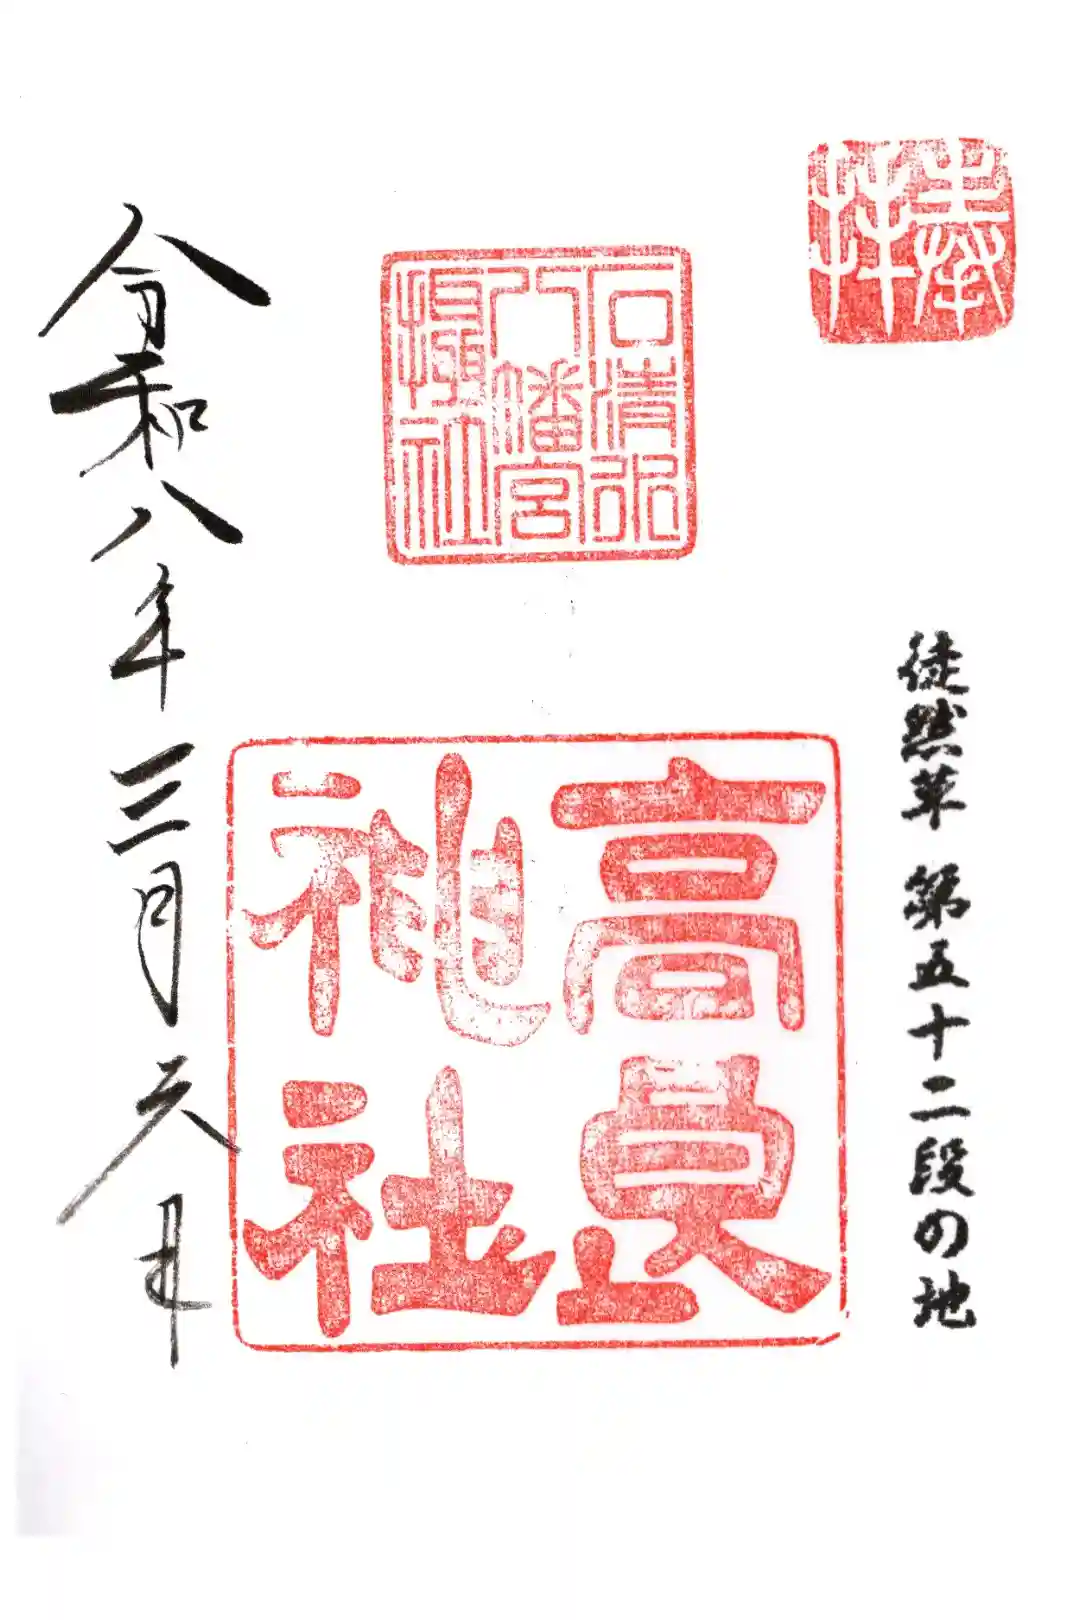 奉拝
石清水
八幡宮
摂社
徒然草 第五十二段の地
高良
神社
令和八年三月六日